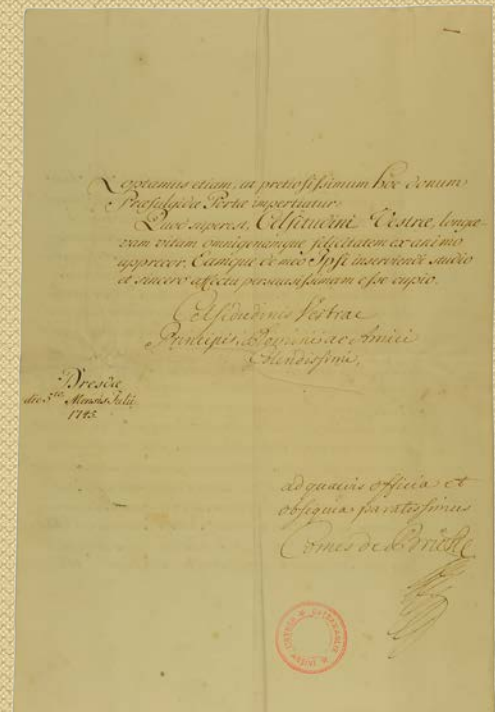 exoptamus etiam, ut pretiosissimum hoc donum
Praefulgidae Portae impertiatur.
Quod superest, Celsitudini Vestrae, longae-
vam vitam omnigenamque felicitatem ex animo
apprecor, Eamque de meo Ipsi inserviendi studio
et sincero affectu persuasissimam esse cupio.
Celsitudinis Vestrae
Principis, Domini ac Amici
Colendissimi,
Dresdae
die 5ta Mensis Julii
1745.
ad quaevis officia et
obsequia paratissimus
Comes de